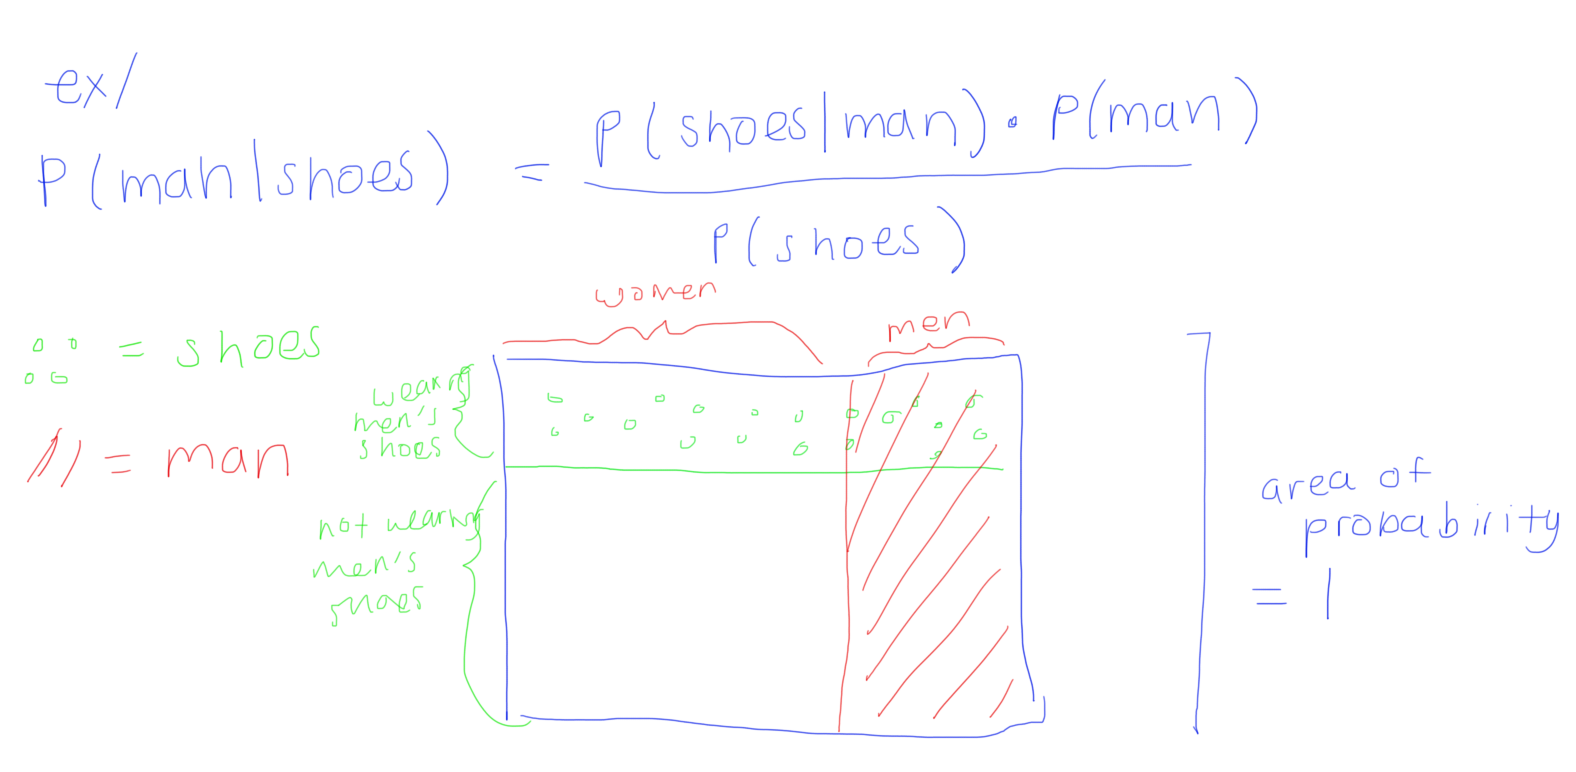 ex/
P(man|shoes) = P(shoes|man) · P(man)
P(shoes)
women
men
= shoes
wearing
men's
shoes
= man
not wearing
men's
shoes
area of
probability
= 1